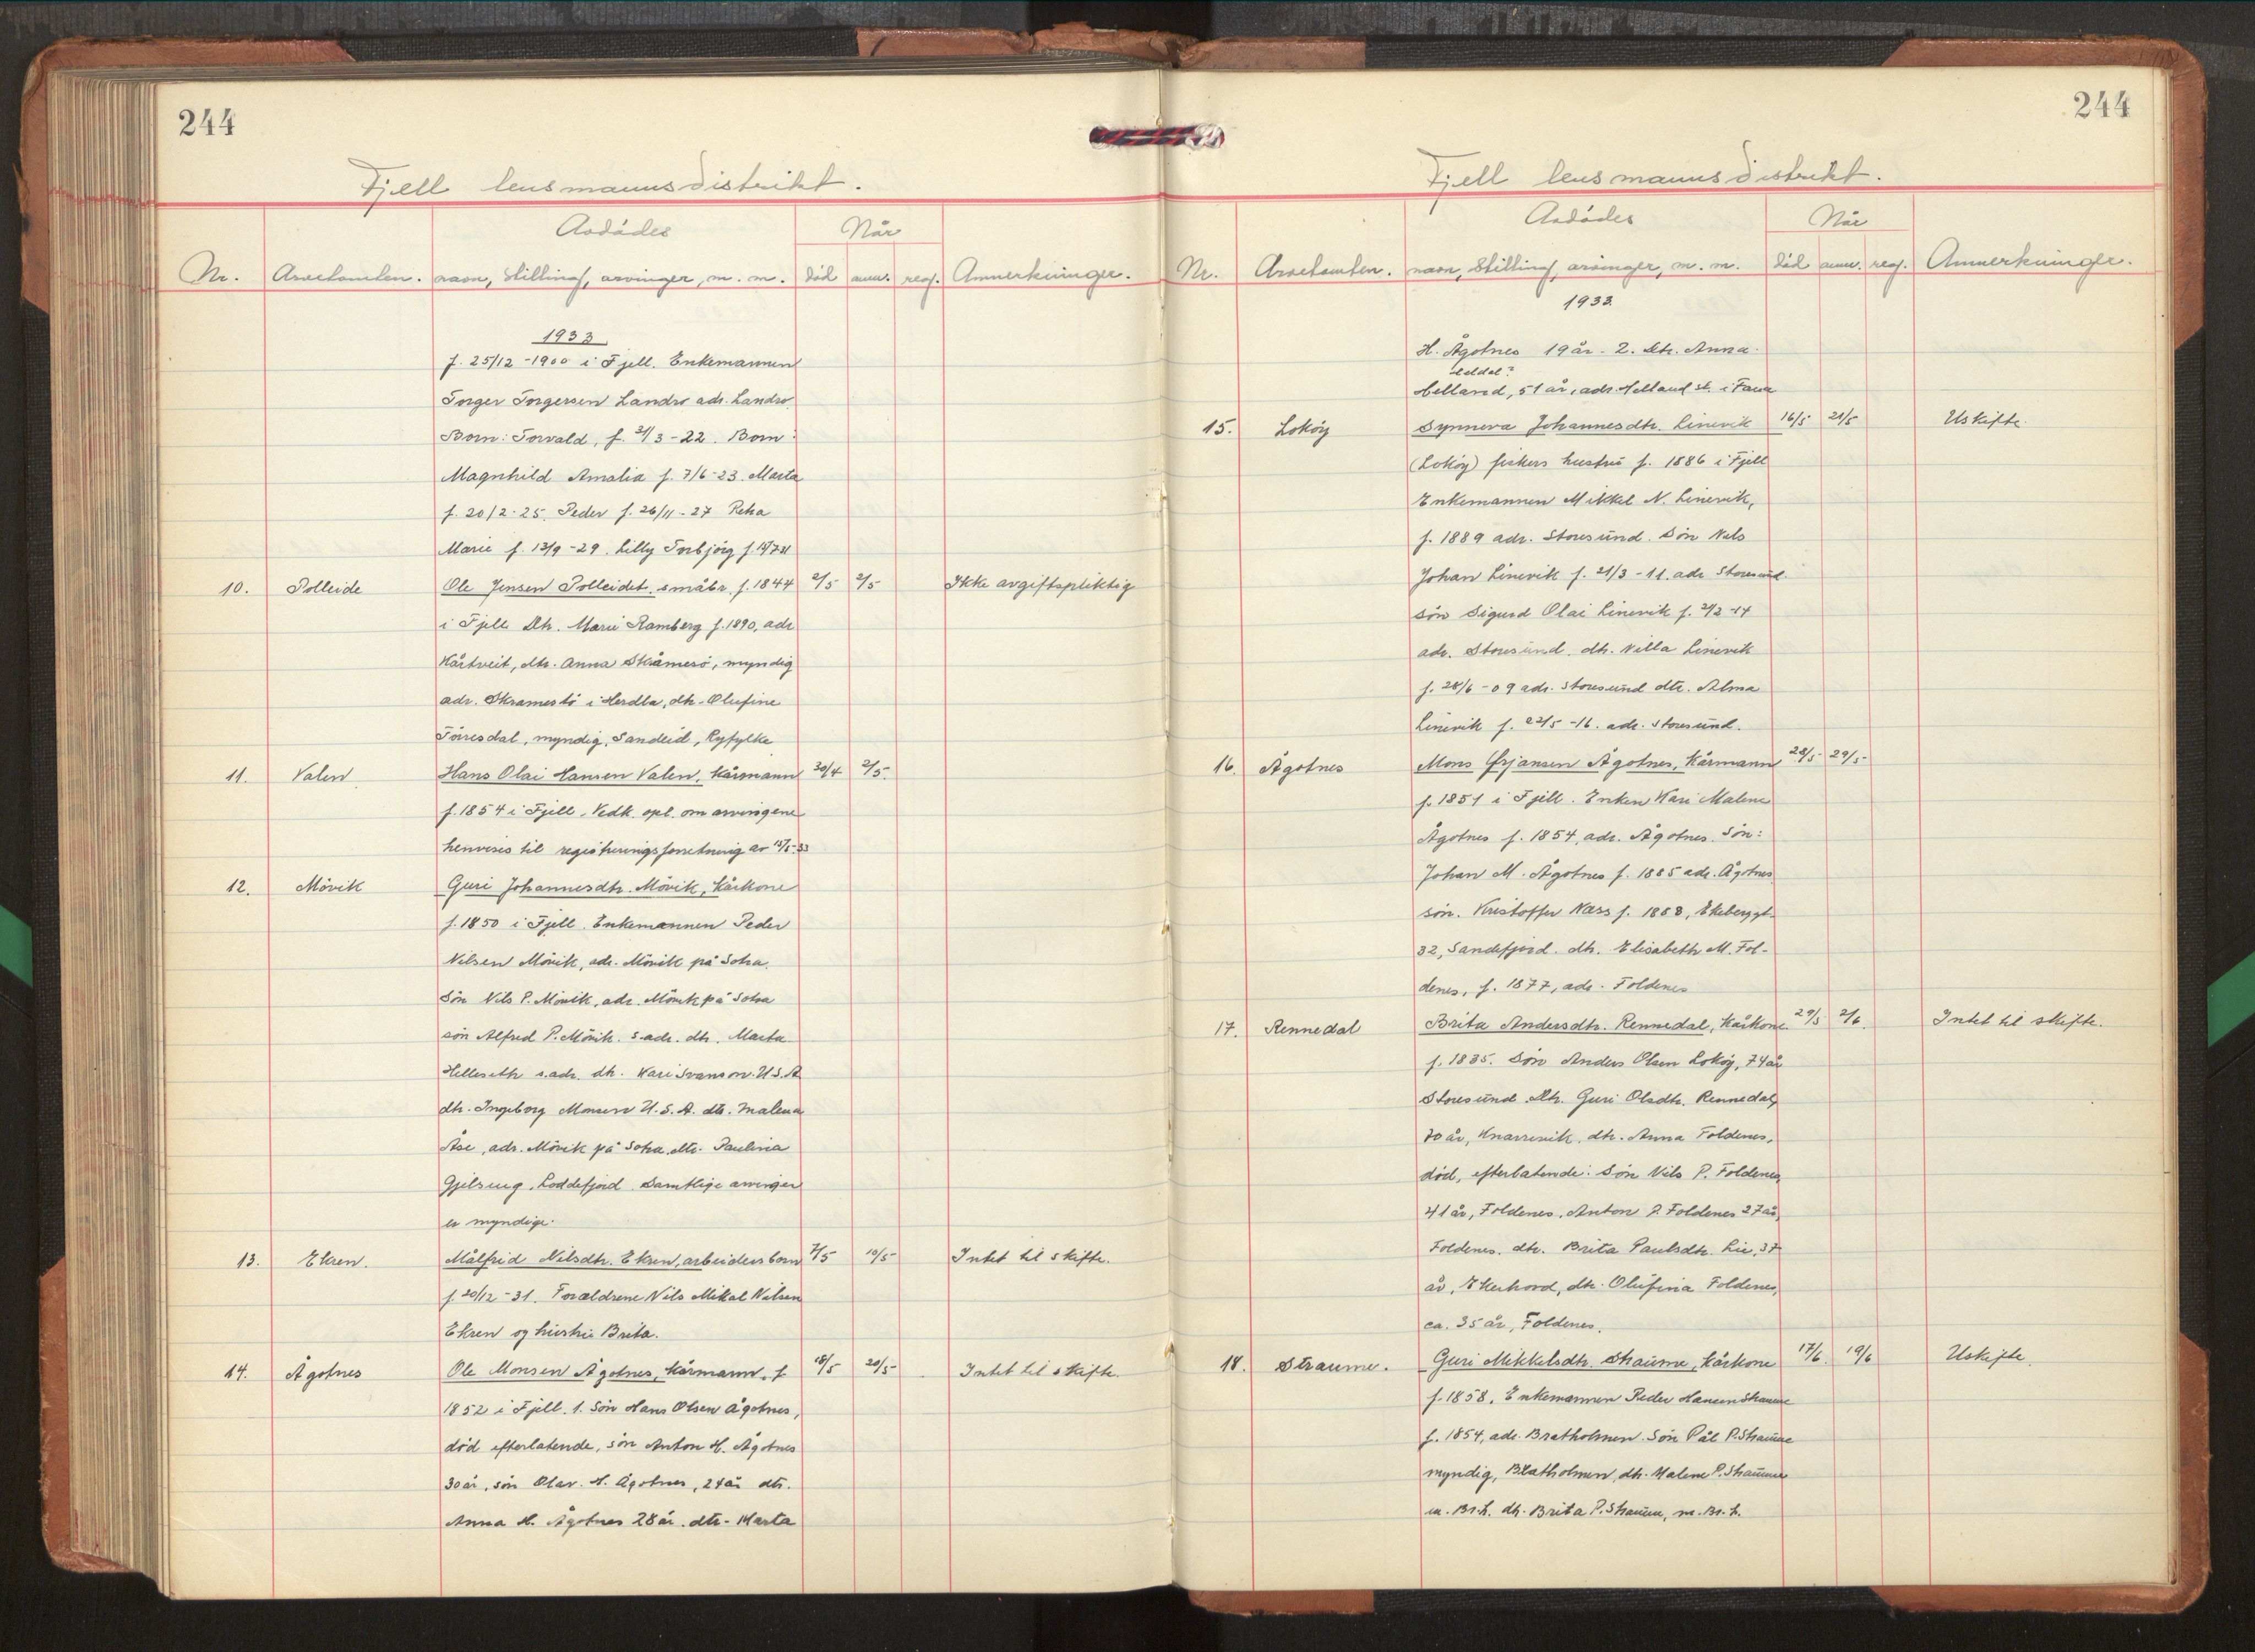 244
Fjell lensmannsdistrikt.
Avdødes
Når
Nr. Arvetomten. navn, stilling, arvinger, m. m. død anm. reg. Anmerkninger.
1933
f. 25/12-1900 i Fjell. Enkemannen
Torger Torgersen Landro adr. Landro
Born: Torvald, f. 31/3-22. Born:
Magnhild Amalia f. 7/6-23. Marta
f. 20/2-25. Peder f. 26/11-27 Petra
Marie f. 13/9-29. Lilly Torbjörg f.
10. Polleide Ole Jensen Polleidet. småbr. f. 1844 2/5 2/5 Ikke avgiftspliktig
i Fjell Dtr. Marie Ramberg f. 1890, adr
Kårtveit, dtr. Anna Skåmesö, myndig
adr. Skramestö i Herdla, dtr. Olufine
Törresdal, myndig, Sandeid, Ryfylke
11. Valen Hans Olai Hansen Valen, kårmann 30/4 2/5.
f. 1854 i Fjell. Vedk. opl. om arvingene
henvises til registreringsforretning av 15/5-33
12. Mövik Guri Johannesdtr. Mövik, kårkone
f. 1850 i Fjell. Enkemannen Peder
Nilsen Mövik, adr. Mövik på Sotra.
Sön Nils P. Mövik, adr. Mövik på Sotra
sön Alfred P. Mövik. s. adr. dtr. Marta
Helleseth s. adr. dtr. Kari Svanson. U.S.A
dtr. Ingeborg Monsen U.S.A. dtr. Malena
Åse, adr. Mövik på Sotra. dtr. Paulina
Gjelseng, Loddefjord. Samtlige arvinger
er myndige.
13. Ekren. Målfrid Nilsdtr. Ekren, arbeidersborn 7/5 10/5 Intet til skifte.
f. 20/12-31. Foreldrene Nils Mikal Nilsen
Ekren og hustru Brita.
14. Ågotnes Ole Monsen Ågotnes, kårmann, f. 18/5 20/5 Intet til skifte.
1852 i Fjell. 1. Sön Hans Olsen Ågotnes,
död efterlatende, sön Anton H. Ågotnes
30 år, sön Olav. H. Ågotnes, 24 år dtr.
Anna H. Ågotnes 28 år. dtr. Marta
244
Fjell lensmannsdistrikt.
Avdødes
Når
Nr. Arvetomten. navn, stilling, arvinger, m. m. død anm. reg. Anmerkninger.
1933
H. Ågotnes 19 år. 2. dtr. Anna
Helland, 51 år, adr. Helland st. i Fana
15. Loköy Synneva Johannesdtr. Linevik 16/5 21/5 Uskifte.
(Loköy) fiskers hustru f. 1886 i Fjell
Enkemannen Mikkel N. Linevik,
f. 1889 adr. Storesund. Sön Nils
Johan Linevik f. 21/3-11. adr. Storesund.
sön Sigurd Olai Linevik f. 2/3-14
adr. Storesund. dtr. Nilla Linevik
f. 28/6-09 adr. Storesund dtr. Alma
Linevik f. 22/5-16. adr. Storesund.
16. Ågotnes Mons Ørjansen Ågotnes, kårmann 28/5 29/5
f. 1851 i Fjell. Enken Kari Malene
Ågotnes f. 1854, adr. Ågotnes. Sön:
Johan M. Ågotnes f. 1885 adr. Ågotnes
sön. Kristoffer Næss f. 1888, Ekeberggt.
32, Sandefjord. dtr. Elisabeth M. Fol-
denes, f. 1877, adr. Foldenes
17. Rennedal Brita Andersdtr. Rennedal, kårkone 29/5 2/6. Intet til skifte.
f. 1835. Sön Anders Olsen Loköy, 74 år
Storesund. Dtr. Guri Olsdtr. Rennedal,
70 år, Knarrevik. dtr. Anna Foldenes,
död, efterlatende: Sön Nils P. Foldenes,
41 år, Foldenes. Anton P. Foldenes 27 år,
Foldenes. dtr. Brita Paulsdtr. Lie, 37
år, Ekerhovd, dtr. Olufina Foldenes,
ca. 35 år, Foldenes.
18. Straume. Guri Mikkelsdtr. Straume, kårkone 17/6. 19/6 Uskifte.
f. 1858. Enkemannen Peder Hansen Straume
f. 1854, adr. Bratholmen. Sön Pål P. Straume
myndig, Bratholmen, dtr. Malene P. Straume
m. Br.h. dtr. Brita P. Straume, m. Br. h.